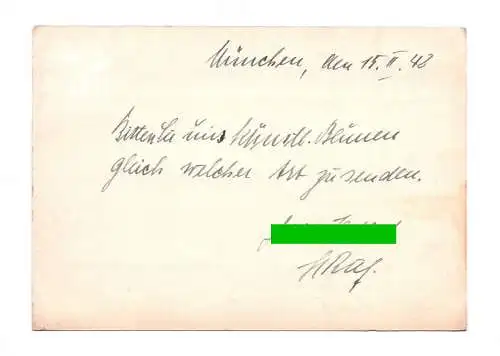 München, den 15. II. 48
Bitten Sie uns Künstl. Blumen
gleich welcher Art zusenden.